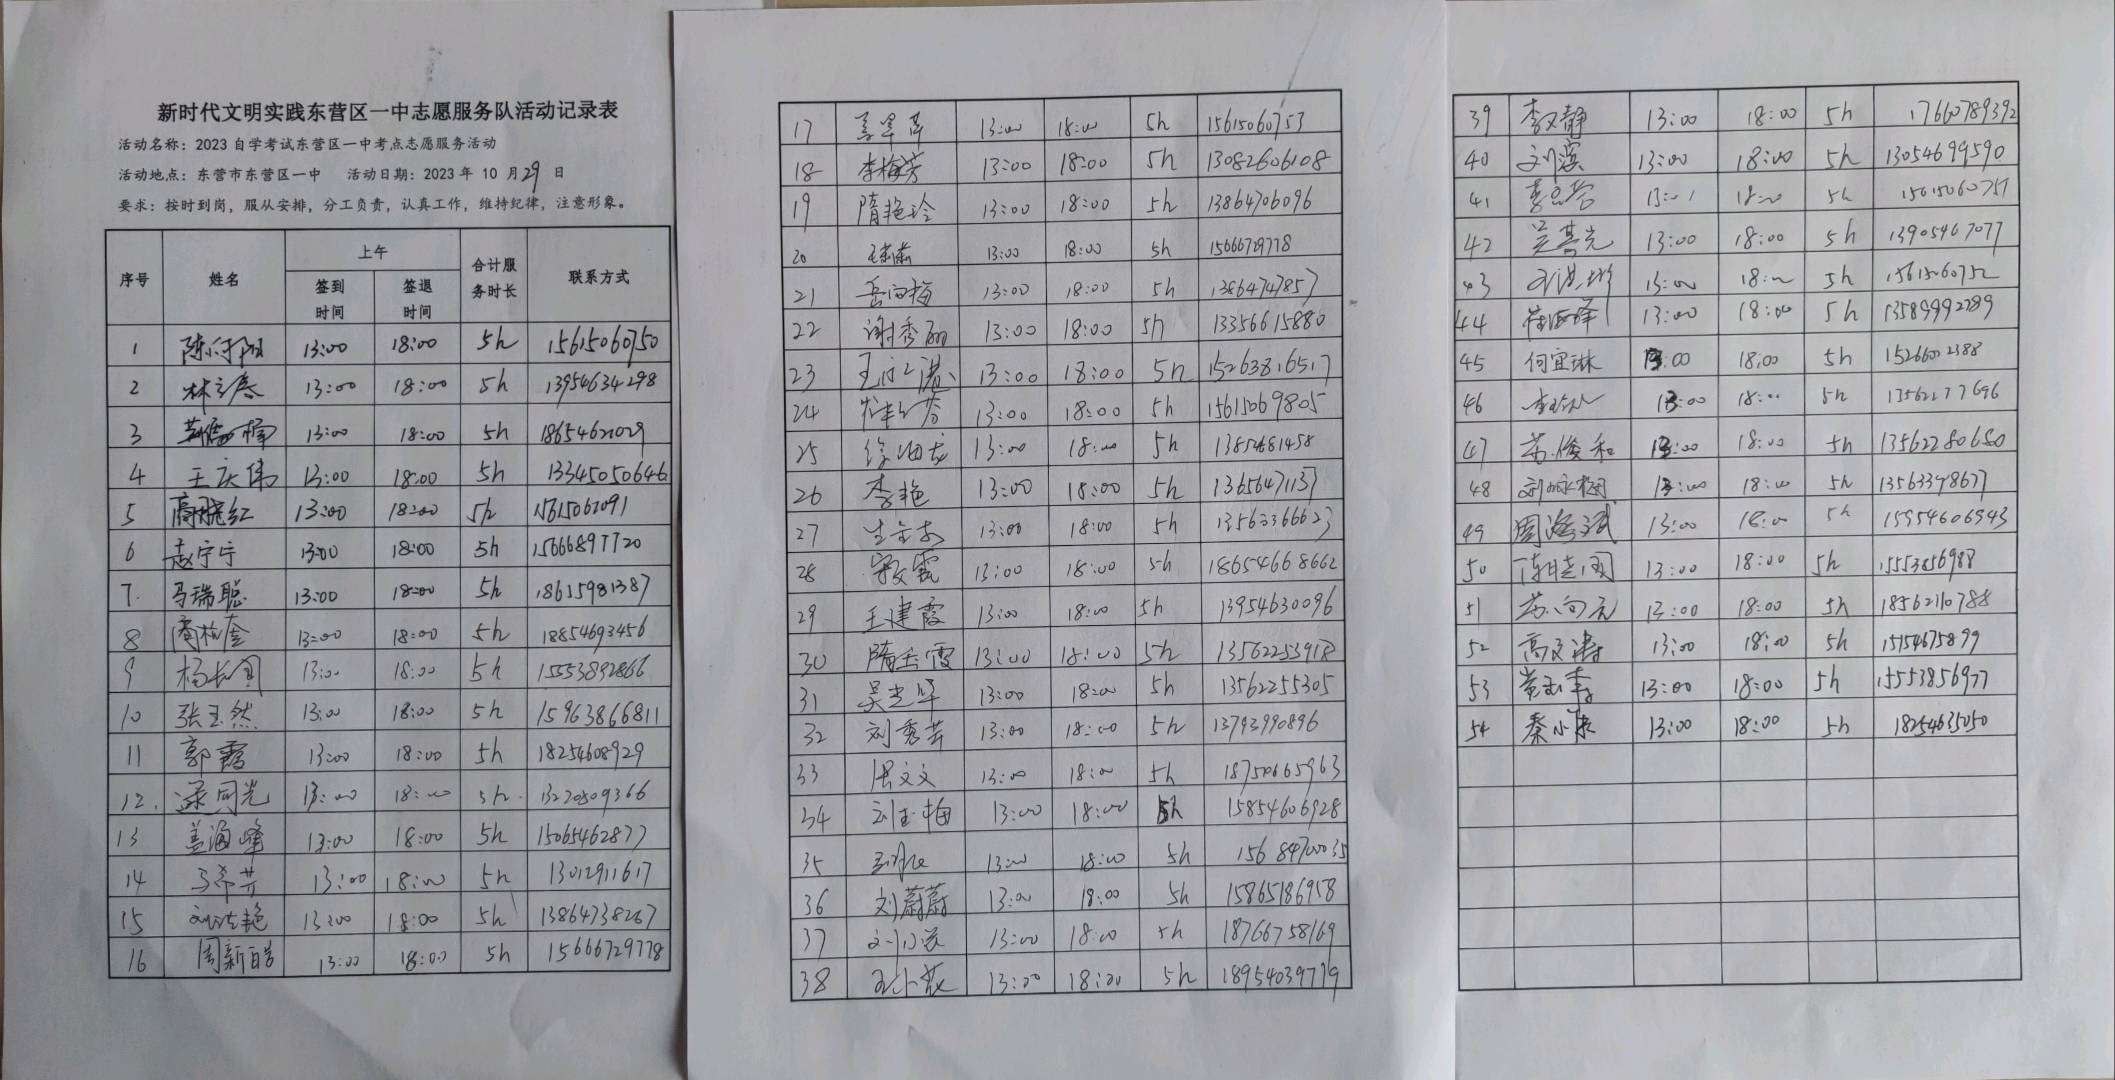 新时代文明实践东营区一中志愿服务队活动记录表
活动名称：2023 自学考试东营区一中考点志愿服务活动
活动地点：东营市东营区一中 活动日期：2023 年 10 月 29 日
要求：按时到岗，服从安排，分工负责，认真工作，维持纪律，注意形象。
序号 姓名 上午 合计服务时长 联系方式
签到时间 签退时间
1 13:00 18:00 5h 15615060750
2 13:00 18:00 5h 13954634298
3 13:00 18:00 5h 18654621029
4 王庆伟 13:00 18:00 5h 13345050646
5 高晓红 13:00 18:00 5h
6 赵宁宁 13:00 18:00 5h 15666897720
7. 马瑞聪 13:00 18:00 5h 18615981387
8 13:00 18:00 5h 18854693456
9 13:00 18:00 5h 15553892866
10 张玉然 13:00 18:00 5h 15963866811
11 郭霞 13:00 18:00 5h 18254608929
12. 梁同光 13:00 18:00 5h. 13220809366
13 盖海峰 13:00 18:00 5h 15065462877
14 13:00 18:00 5h 13012911617
15 13:00 18:00 5h 13864738267
16 周新皓 13:00 18:00 5h 15666729778
17 13:00 18:00 5h 15615060753
18 李梅芳 13:00 18:00 5h 13082606108
19 隋艳玲 13:00 18:00 5h 13864706096
20 13:00 18:00 5h 15666729778
21 岳向梅 13:00 18:00 5h 13864747857
22 谢秀丽 13:00 18:00 5h 13356615880
23 13:00 18:00 5h 15263816517
24 13:00 18:00 5h 15615069805
25 13:00 18:00 5h
26 李艳 13:00 18:00 5h 13656471137
27 13:00 18:00 5h 13563366623
28 13:00 18:00 5h 18654668662
29 王建霞 13:00 18:00 5h 13954630096
30 隋玉霞 13:00 18:00 5h 13562253918
31 吴光军 13:00 18:00 5h 13562255305
32 刘秀芸 13:00 18:00 5h 13793990896
33 13:00 18:00 5h 18750665963
34 刘玉梅 13:00 18:00 5h 15854606928
35 13:00 18:00 5h 15684700035
36 刘蔚蔚 13:00 18:00 5h 15865186958
37 13:00 18:00 5h 18766758169
38 13:00 18:00 5h 18954039779
39 李文静 13:00 18:00 5h 17660789392
40 刘滨 13:00 18:00 5h 13054699590
41 18:00 5h 15615060751
42 13:00 18:00 5h 13905467077
43 13:00 18:00 5h 15615060752
44 崔海峰 13:00 18:00 5h 13589992289
45 何宜琳 13:00 18:00 5h
46 13:00 18:00 5h 13562277696
47 苏俊和 13:00 18:00 5h 13562280680
48 13:00 18:00 5h 13563398677
49 周海斌 13:00 18:00 5h 15954606943
50 13:00 18:00 5h 15553856988
51 苏向元 13:00 18:00 5h 18562110788
52 高文涛 13:00 18:00 5h 15154675899
53 13:00 18:00 5h 15553856977
54 13:00 18:00 5h 18254635050